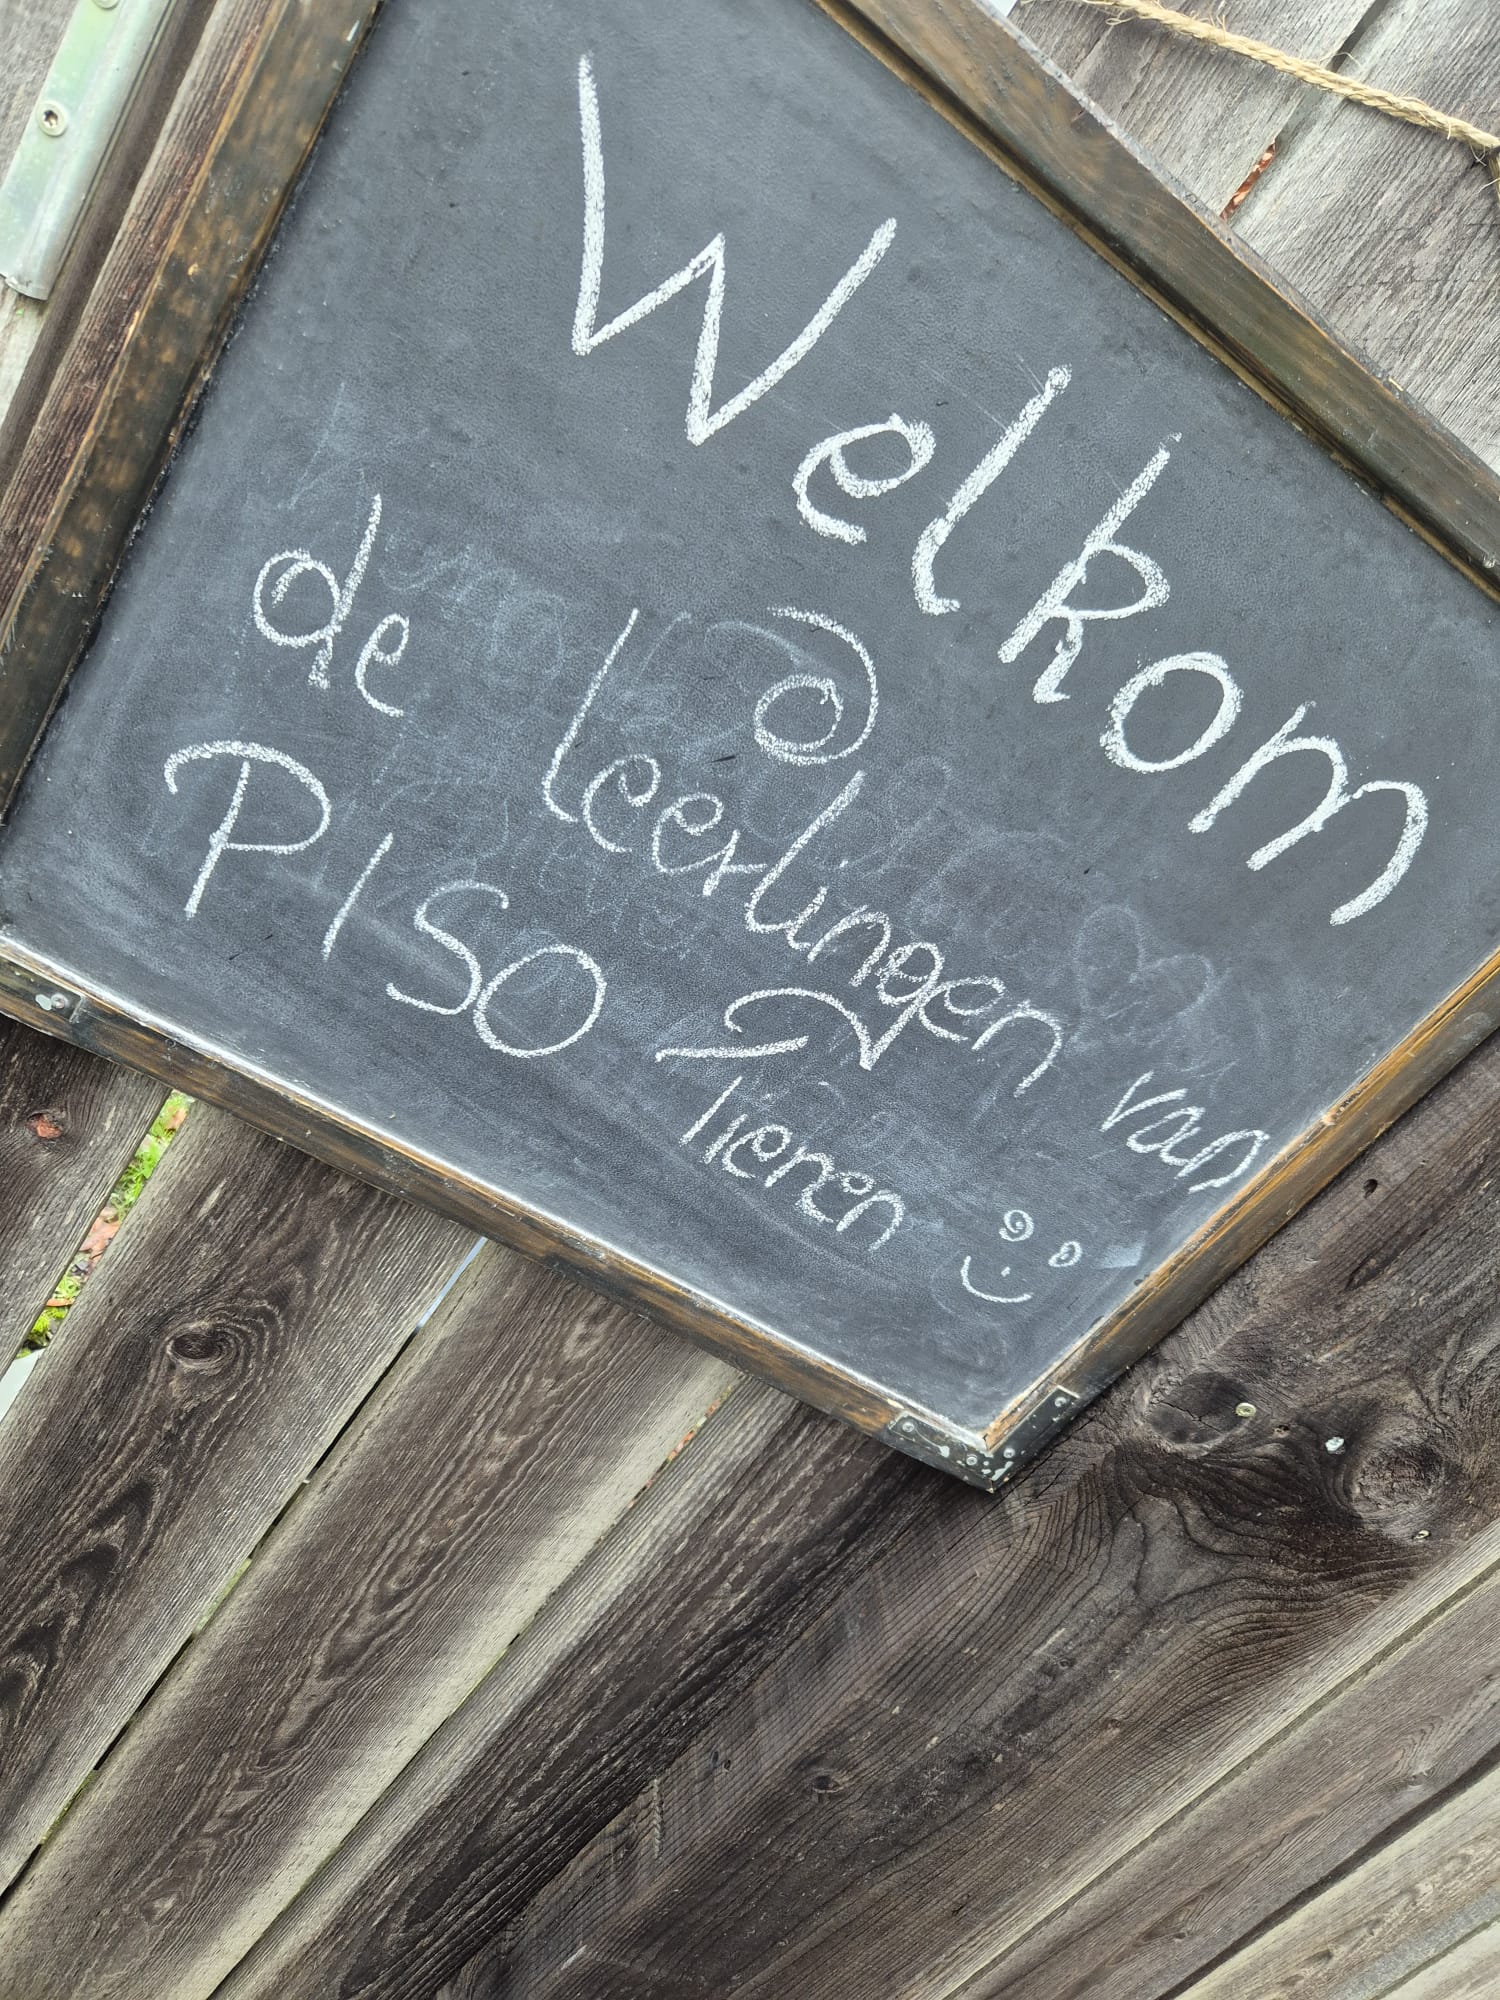 Welkom
de leerlingen van
PISO Tienen